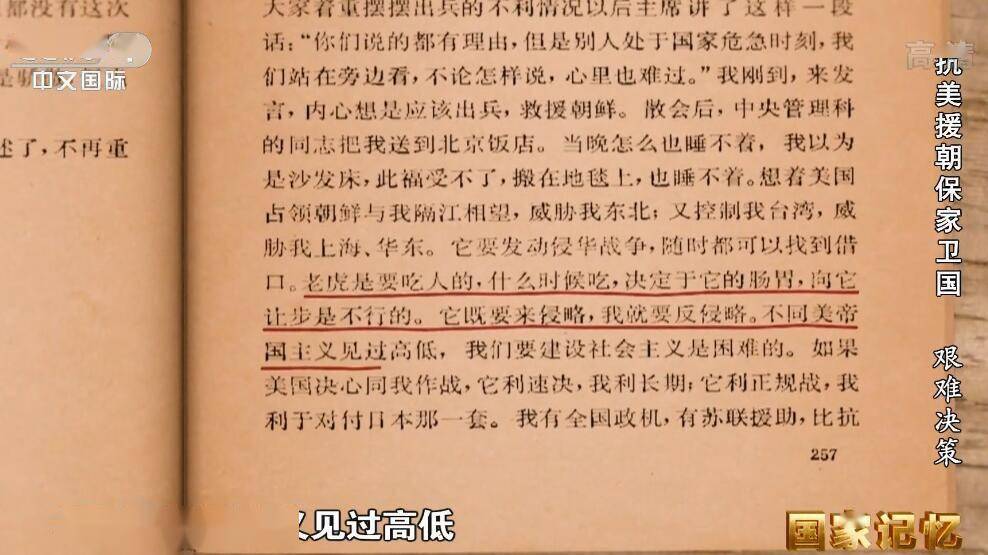 都没有这次
中文国际
述了，不再重
大家着重摆摆出兵的不利情况以后主席讲了这样一段
话：“你们说的都有理由，但是别人处于国家危急时刻，我
们站在旁边看，不论怎样说，心里也难过。”我刚到，未发
言，内心想是应该出兵，救援朝鲜。散会后，中央管理科
的同志把我送到北京饭店。当晚怎么也睡不着，我以为
是沙发床，此福受不了，搬在地毯上，也睡不着。想着美国
占领朝鲜与我隔江相望，威胁我东北；又控制我台湾，威
胁我上海、华东。它要发动侵华战争，随时都可以找到借
口。老虎是要吃人的，什么时候吃，决定于它的肠胃，向它
让步是不行的。它既要来侵略，我就要反侵略。不同美帝
国主义见过高低，我们要建设社会主义是困难的。如果
美国决心同我作战，它利速决，我利长期；它利正规战，我
利于对付日本那一套。我有全国政机，有苏联援助，比抗
257
高清
抗美援朝保家卫国 艰难决策
义见过高低
国家记忆